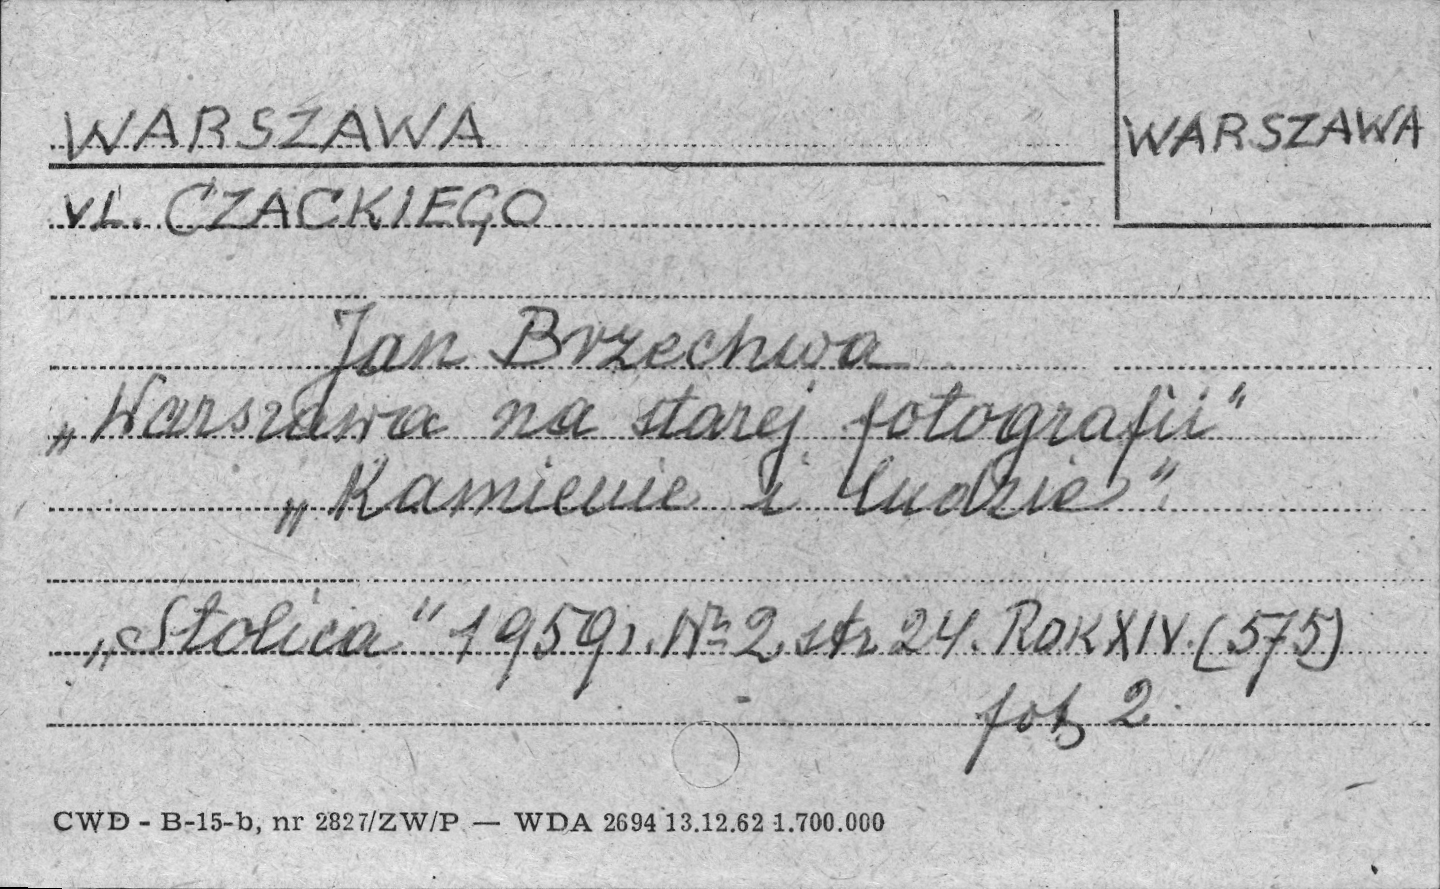 WARSZAWA
WARSZAWA
UL. CZACKIEGO
Jan Brzechwa
„Warszawa na starej fotografii"
„Kamienie i ludzie".
„Stolica" 1959 r. № 2 str 24. ROK XIV. (575)
fot 2
CWD - B-15-b, nr 2827/ZW/P — WDA 2694 13.12.62 1.700.000